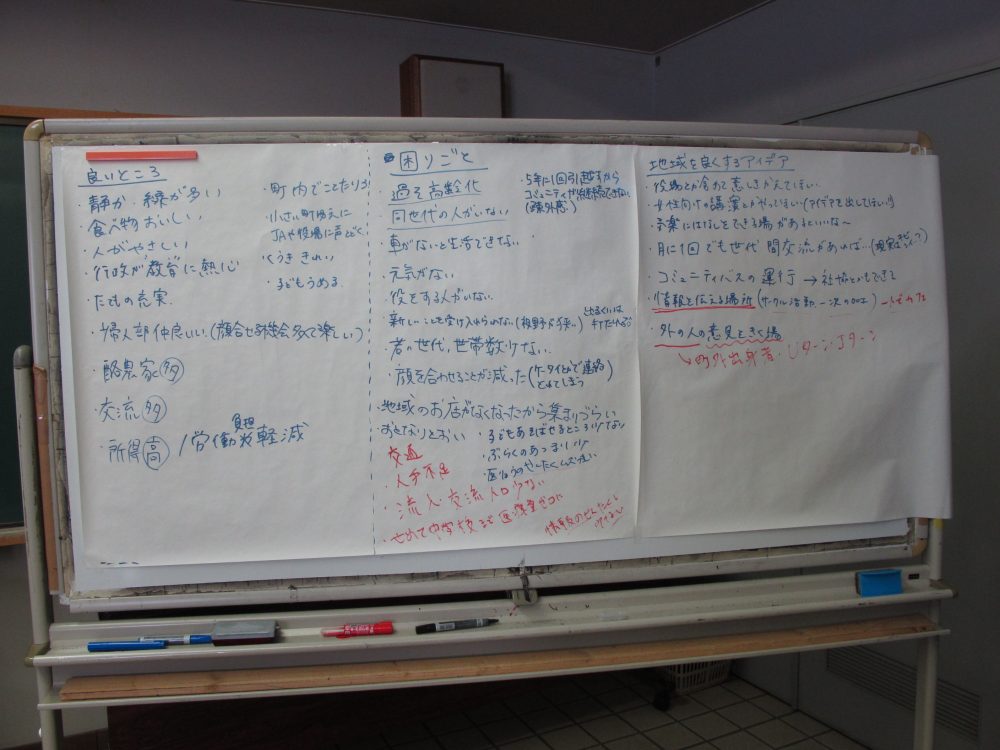 良いところ
・静か 緑が多い
・食べ物おいしい
・人がやさしい
・行政が教育に熱心
・たてもの充実
・婦人部仲良い!(顔合せる機会多くて楽しい)
・酪農家 多
・交流 多
・所得 高 / 労働 負担 軽減
・町内でことたりる
・小さい町ゆえに
JAや役場に声とどく
・くうき きれい
・子どもうめる
困りごと
過そ高齢化
同世代の人がいない
車がないと生活できない
元気がない
役をする人がいない
新しいことを受け入れられない(視野が狭い)
出るくいは
若い世代、世帯数少ない
・顔を合わせることが減った(ケータイとかで連絡
とれてしまう)
・地域のお店がなくなったから集まりづらい
おとなりとおい
・5年に1回引越すから
コミュニティが継続できない
(疎外感)
・子どもあそばせるところ少ない
・ぶらくのあつまり少
交通
・人手不足
・流入・交流人口少ない
・せめて中学校まで医療費ゼロに
地域を良くするアイデア
・役場とか含めて意しきかえてほしい
・女性向けの講演とかやってほしい(アイデアを出してほしい!)
・気楽にはなしをできる場があるといいな~
・月に1回でも世代間交流があれば…
・コミュニティバスの運行 →社協とかもできて
・情報を伝える場所
・外の人の意見をきく場
↳町外出身者・Uターン Jターン